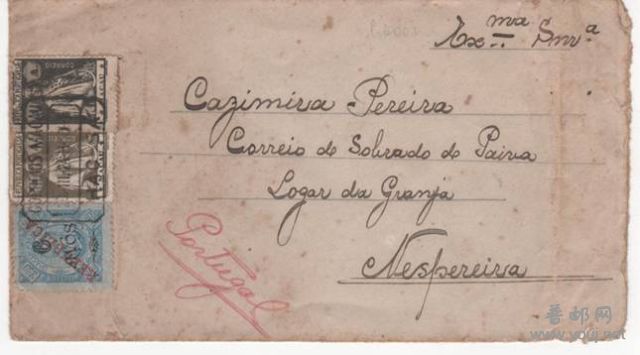 Ex.ma Snr.a
Cazimira Pereira
Correio de Sobrado de Paiva
Logar da Granja
Nespereira
Portugal
CORREIO
MACAU
普邮网
www.youj.net